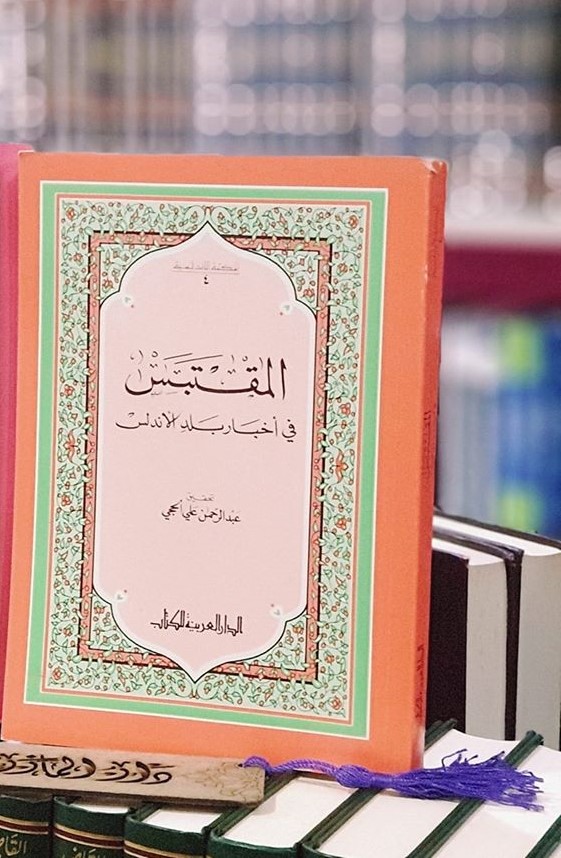 المكتبة الأندلسية
٤
المقتبس
في أخبار بلد الأندلس
تحقيق
عبدالرحمن علي الحجي
الدار العربية للكتاب